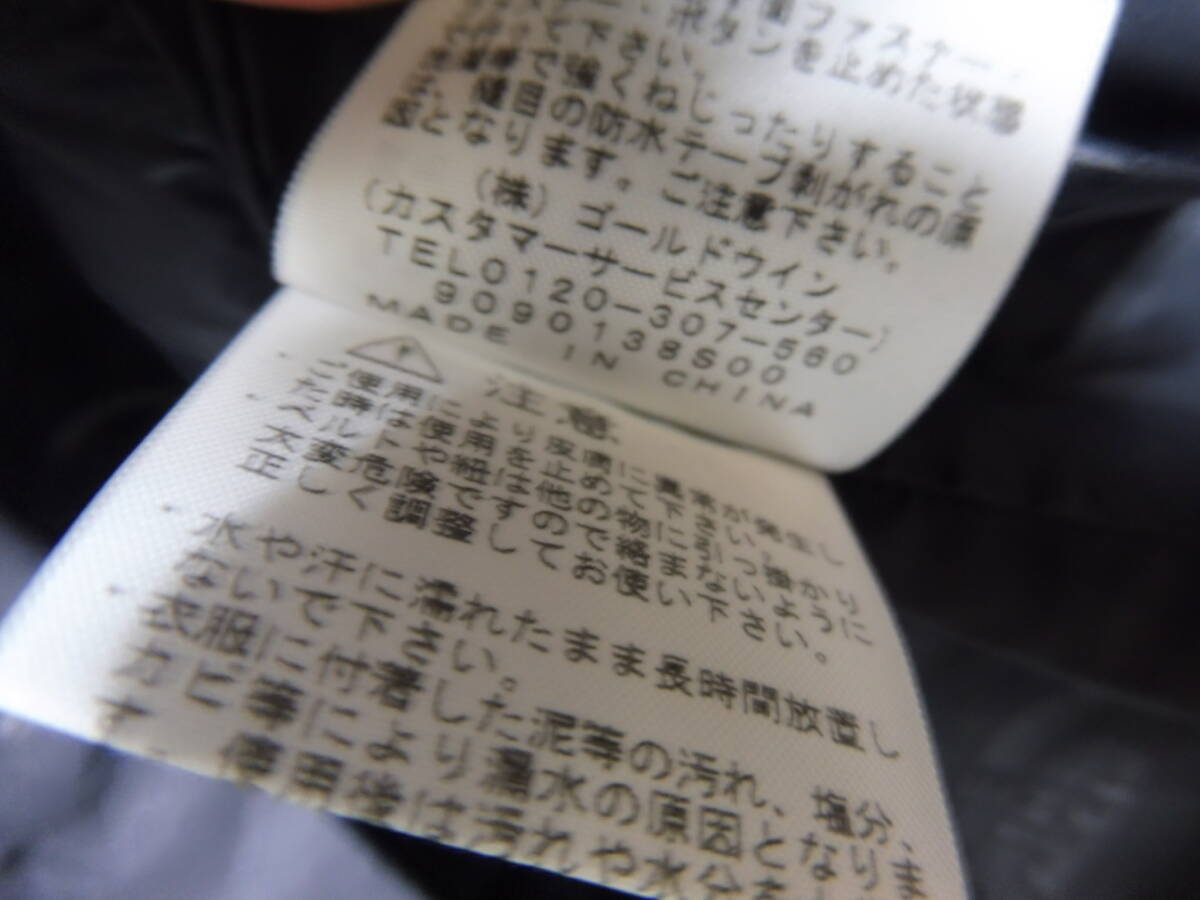 ファスナー、
、ボタンを止めた状態
で下さい。
で強くねじったりすること
、縫目の防水テープ剥がれの原
因となります。ご注意下さい。
(株) ゴールドウイン
(カスタマーサービスセンター)
TEL0120-307-560
9090138S00
MADE IN CHINA
注意
・ご使用により皮膚に異常が発生し
た時は使用を止めて下さい。
・ベルトや紐は他の物に引っ掛かり
大変危険ですので絡まないように
正しく調整してお使い下さい。
・水や汗に濡れたまま長時間放置し
ないで下さい。
・衣服に付着した泥等の汚れ、塩分、
カビ等により漏水の原因となりま
す。使用後は汚れや水分を